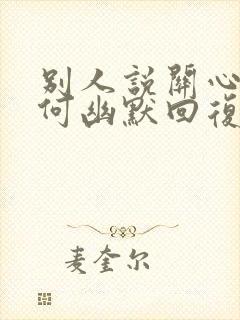 别人説關心
何幽默回復
麦奎尔